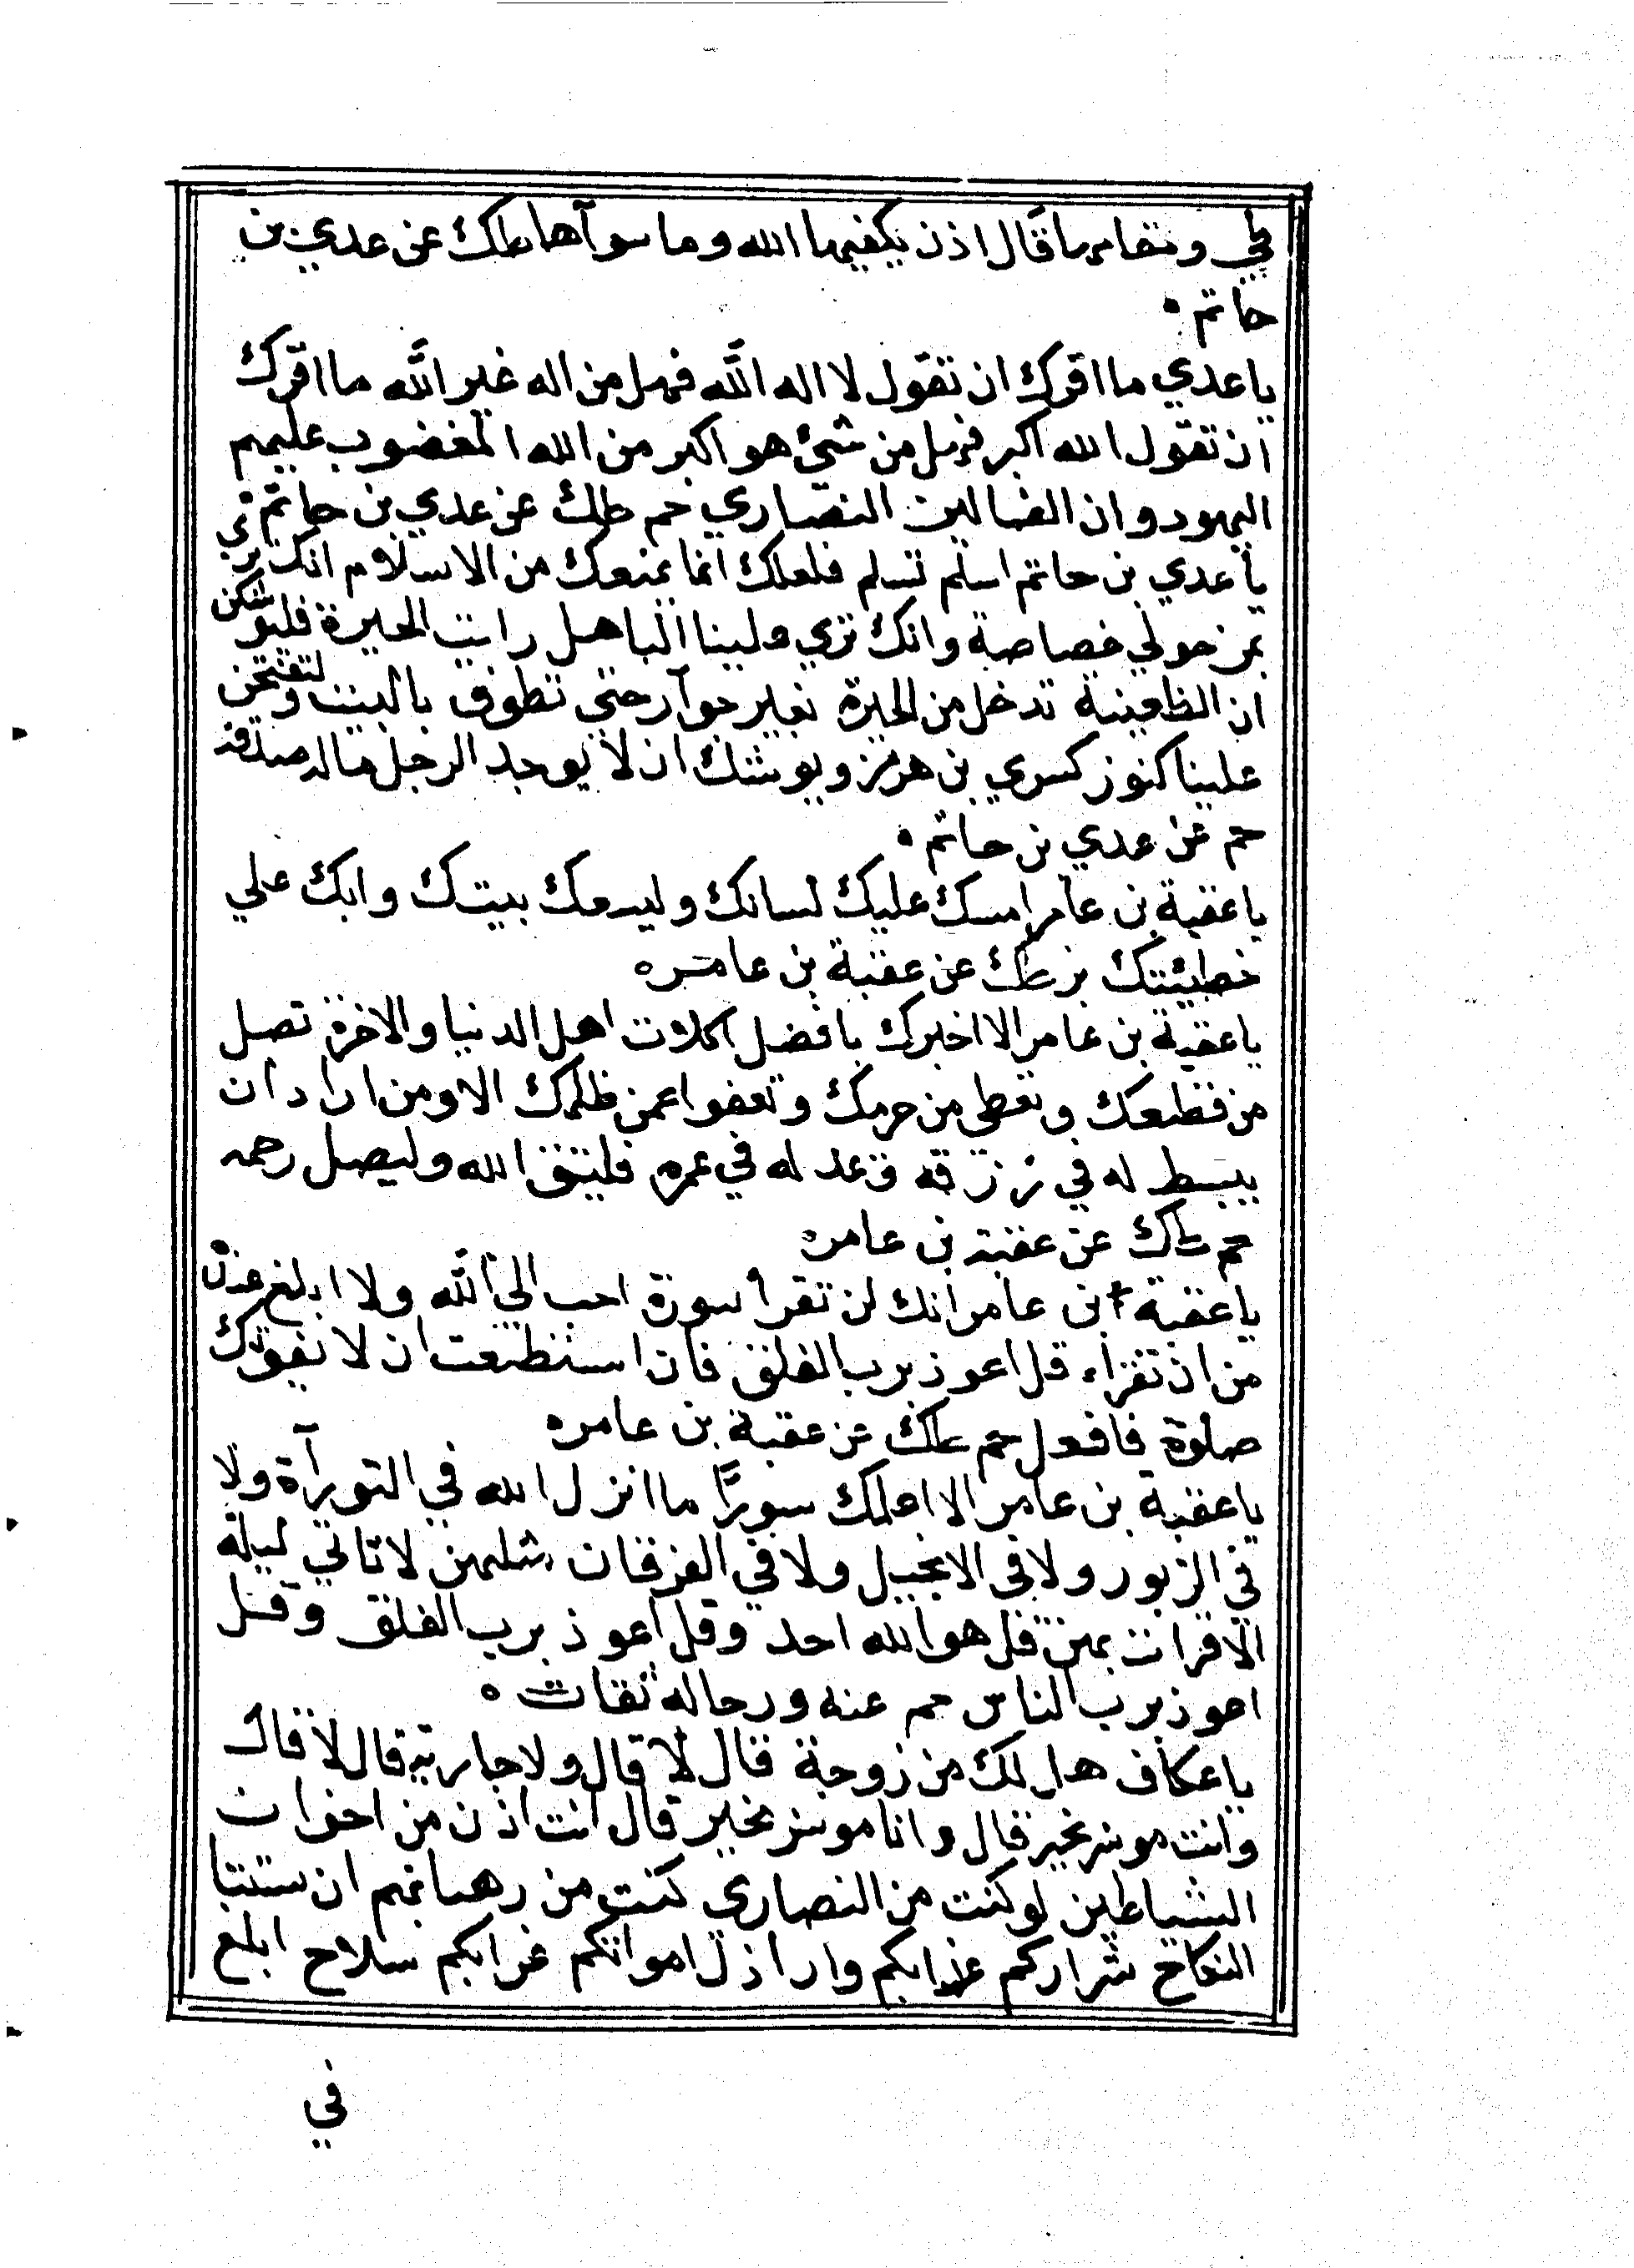 طي ومقامرها قال اذن يكفيها الله وما سواها طك عن عدي بن
حاتم
يا عدي ما افرك ان تقول لا اله الا الله فهل من اله غير الله ما افرك
ان تقول الله اكبر فهل من شيء هو اكبر من الله المغضوب عليهم
اليهود وان الضالين النصاري حم طك عن عدي بن حاتم
يا عدي بن حاتم اسلم تسلم فلعلك انما يمنعك من الاسلام انك تري
بمن حولي خصاصة وانك تري علينا البا هل رايت الحيرة فليوشكن
ان الظعينة تدخل من الحيرة بغير جوار حتي تطوف بالبيت ولتفتحن
علينا كنوز كسري بن هرمز ويوشك ان لا يوجد الرجل ماله صدقة
حم عن عدي بن حاتم
يا عقبة بن عامر امسك عليك لسانك وليسعك بيتك وابك علي
خطيئتك بز طك عن عقبة بن عامر
يا عقبة بن عامر الا اخبرك بافضل اهل الدنيا والاخرة تصل
من قطعك وتعطي من حرمك وتعفوا عمن ظلمك الا ومن اراد ان
يبسط له في رزقه له في عمره فليتق الله وليصل رحمه
حم طك عن عقبة بن عامر
يا عقبة ابن عامر انك لن تقرأ سورة احب الي الله ولا ابلغ عنده
من ان تقراء قل اعوذ برب الفلق فان استطعت ان لا تفوتك
صلوة فافعل حم طك عن عقبة بن عامر
يا عقبة بن عامر الا اعلمك سورًا ما انزل الله في التورآة ولا
في الزبور ولا في الانجيل ولا في الفرقان مثلهن لا تاتي ليلة
الا قرات بهن قل هو الله احد وقل اعوذ برب الفلق وقل
اعوذ برب الناس حم عنه ورجاله ثقات
يا عكاف هل لك من زوجة قال لا قال ولا جارية قال لا قال
وانت موسر بخير قال وانا موسر بخير قال انت اذن من اخوان
الشياطين لو كنت من النصاري كنت من رهبانهم ان سنتنا
النكاح شراركم عزابكم واراذل امواتكم عزابكم سلاح ابلغ
في